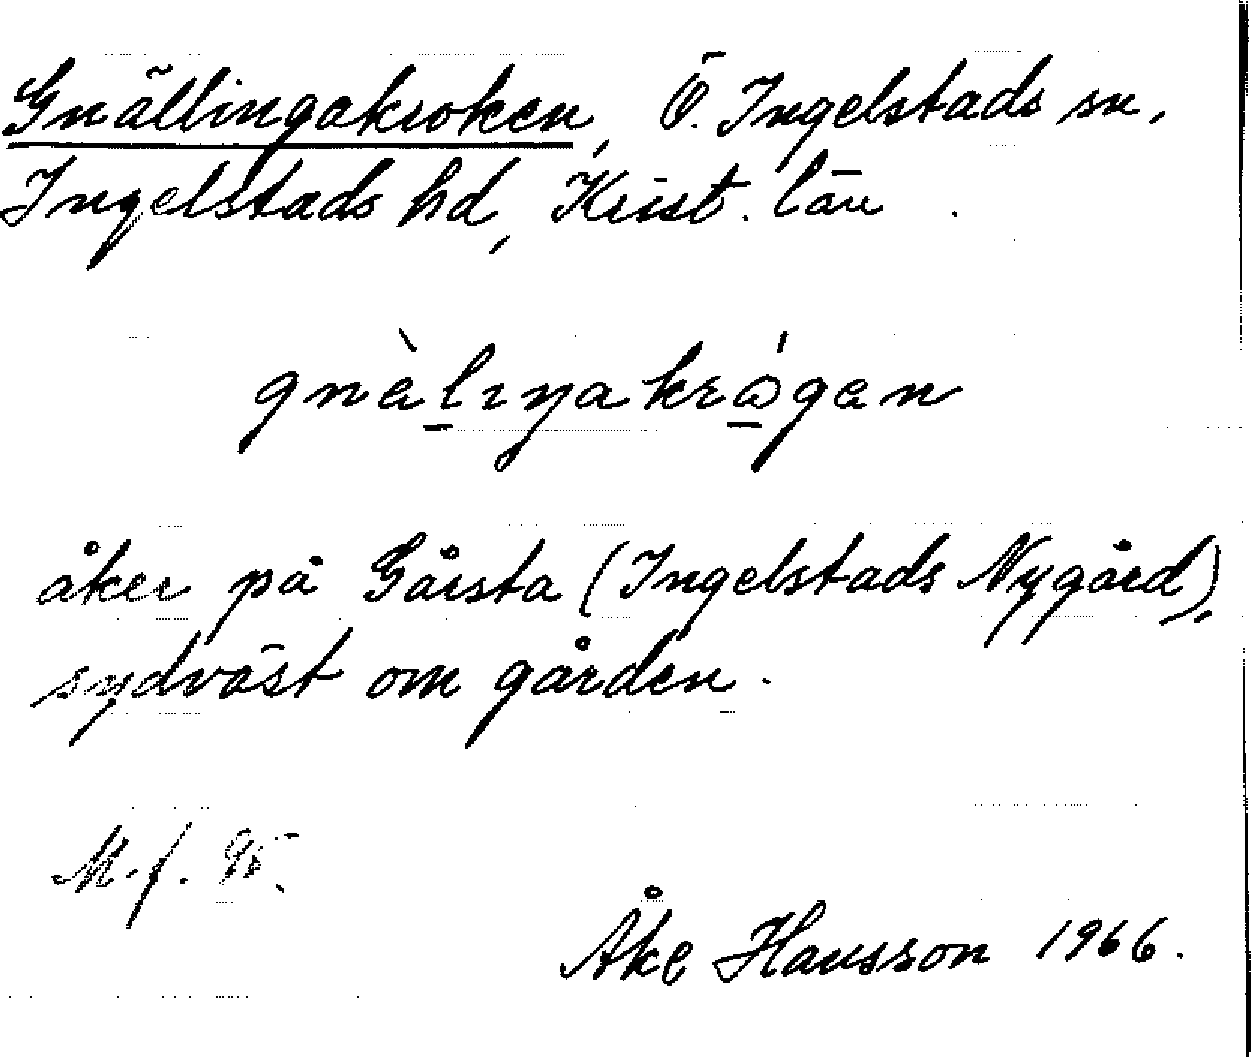 Gnällingakroken, Ö. Ingelstads sn,
Ingelstads hd, Krist. län.
gnèlıŋakrǻgen
åker på Gårsta (Ingelstads Nygård),
sydväst om gården.
M. f. 95.
Åke Hansson 1966.